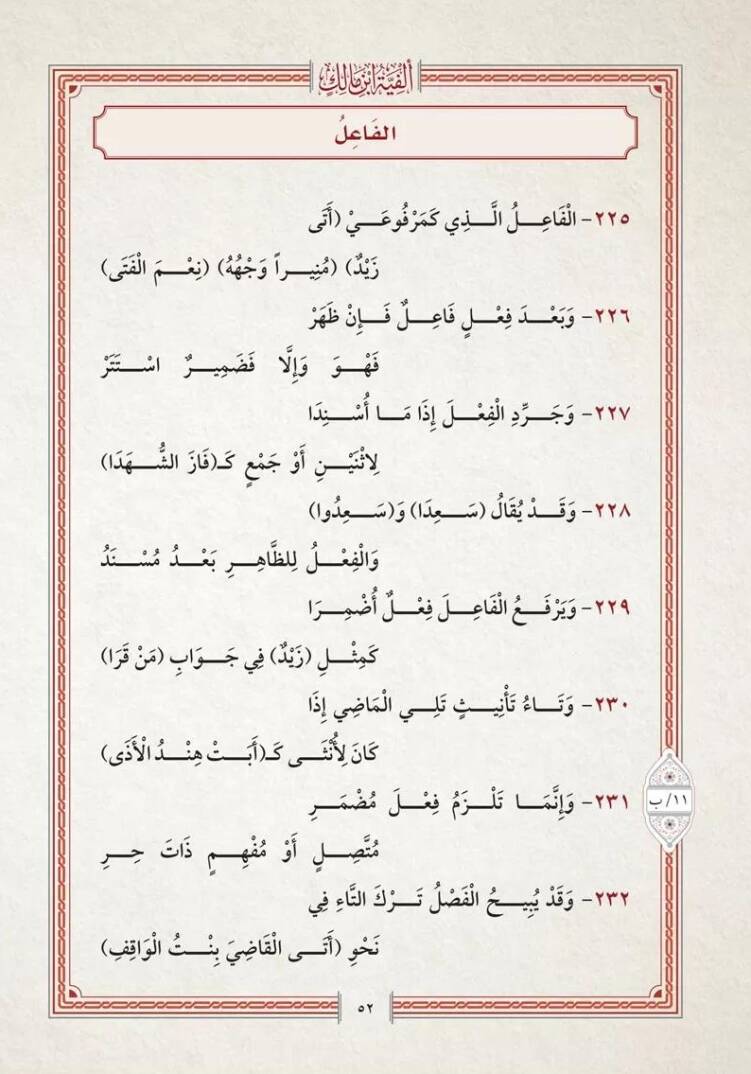 ألفية ابن مالك
الفَاعِلُ
٢٢٥- الْفَاعِلُ الَّذِي كَمَرْفُوعَيْ (أَتَى
زَيْدٌ) (مُنِيراً وَجْهُهُ) (نِعْمَ الْفَتَى)
٢٢٦- وَبَعْدَ فِعْلٍ فَاعِلٌ فَإِنْ ظَهَرْ
فَهْوَ وَإِلَّا فَضَمِيرٌ اسْتَتَرْ
٢٢٧- وَجَرِّدِ الْفِعْلَ إِذَا مَا أُسْنِدَا
لِاثْنَيْنِ أَوْ جَمْعٍ كَـ(فَازَ الشُّهَدَا)
٢٢٨- وَقَدْ يُقَالُ (سَعِدَا) وَ(سَعِدُوا)
وَالْفِعْلُ لِلظَّاهِرِ بَعْدُ مُسْنَدُ
٢٢٩- وَيَرْفَعُ الْفَاعِلَ فِعْلٌ أُضْمِرَا
كَمِثْلِ (زَيْدٌ) فِي جَوَابِ (مَنْ قَرَا)
٢٣٠- وَتَاءُ تَأْنِيثٍ تَلِي الْمَاضِي إِذَا
كَانَ لِأُنْثَى كَـ(أَبَتْ هِنْدُ الْأَذَى)
٢٣١- وَإِنَّمَا تَلْزَمُ فِعْلَ مُضْمَرِ
مُتَّصِلٍ أَوْ مُفْهِمٍ ذَاتَ حِرِ
٢٣٢- وَقَدْ يُبِيحُ الْفَصْلُ تَرْكَ التَّاءِ فِي
نَحْوِ (أَتَى الْقَاضِيَ بِنْتُ الْوَاقِفِ)
١١/ ب
٥٢